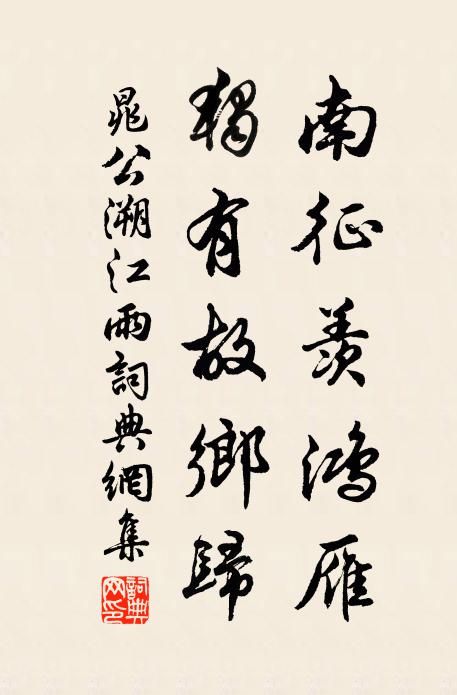 南征羨鴻雁
獨有故鄉歸
晁公溯江雨詞典網集
詞典网印